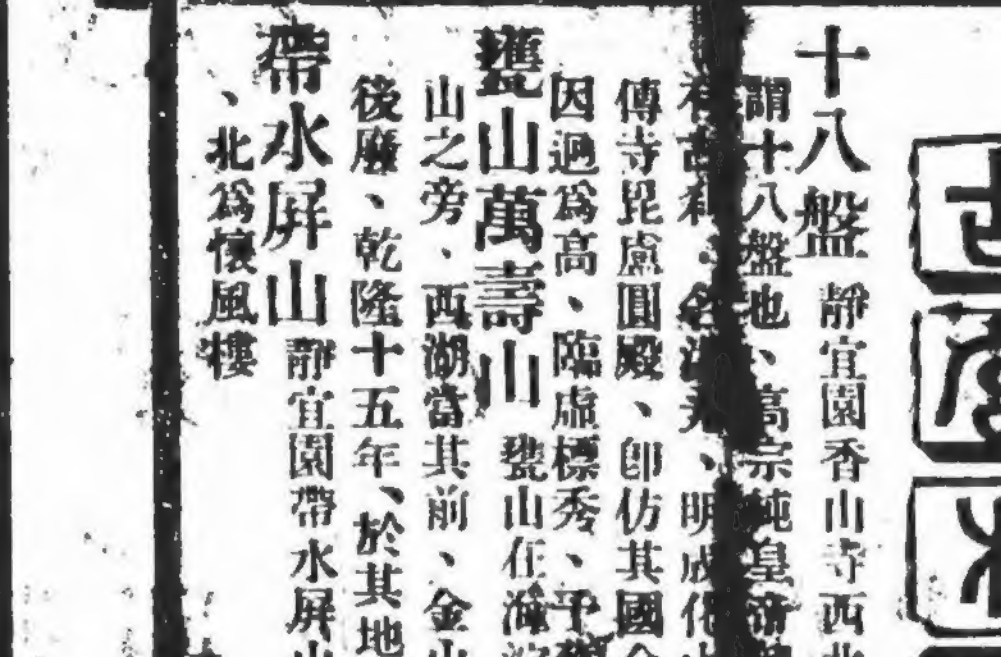 十八盤 靜宜園香山寺西北
謂十八盤也、高宗純皇帝
有古刹、名洪光、明成化
傳寺毘盧圓殿、卽仿其國
因迥爲高、臨虛標秀、予
甕山萬壽山 甕山在海
山之旁、西湖當其前、金山
後廢、乾隆十五年、於其地
帶水屛山 靜宜園帶水屛山
、北爲懷風樓